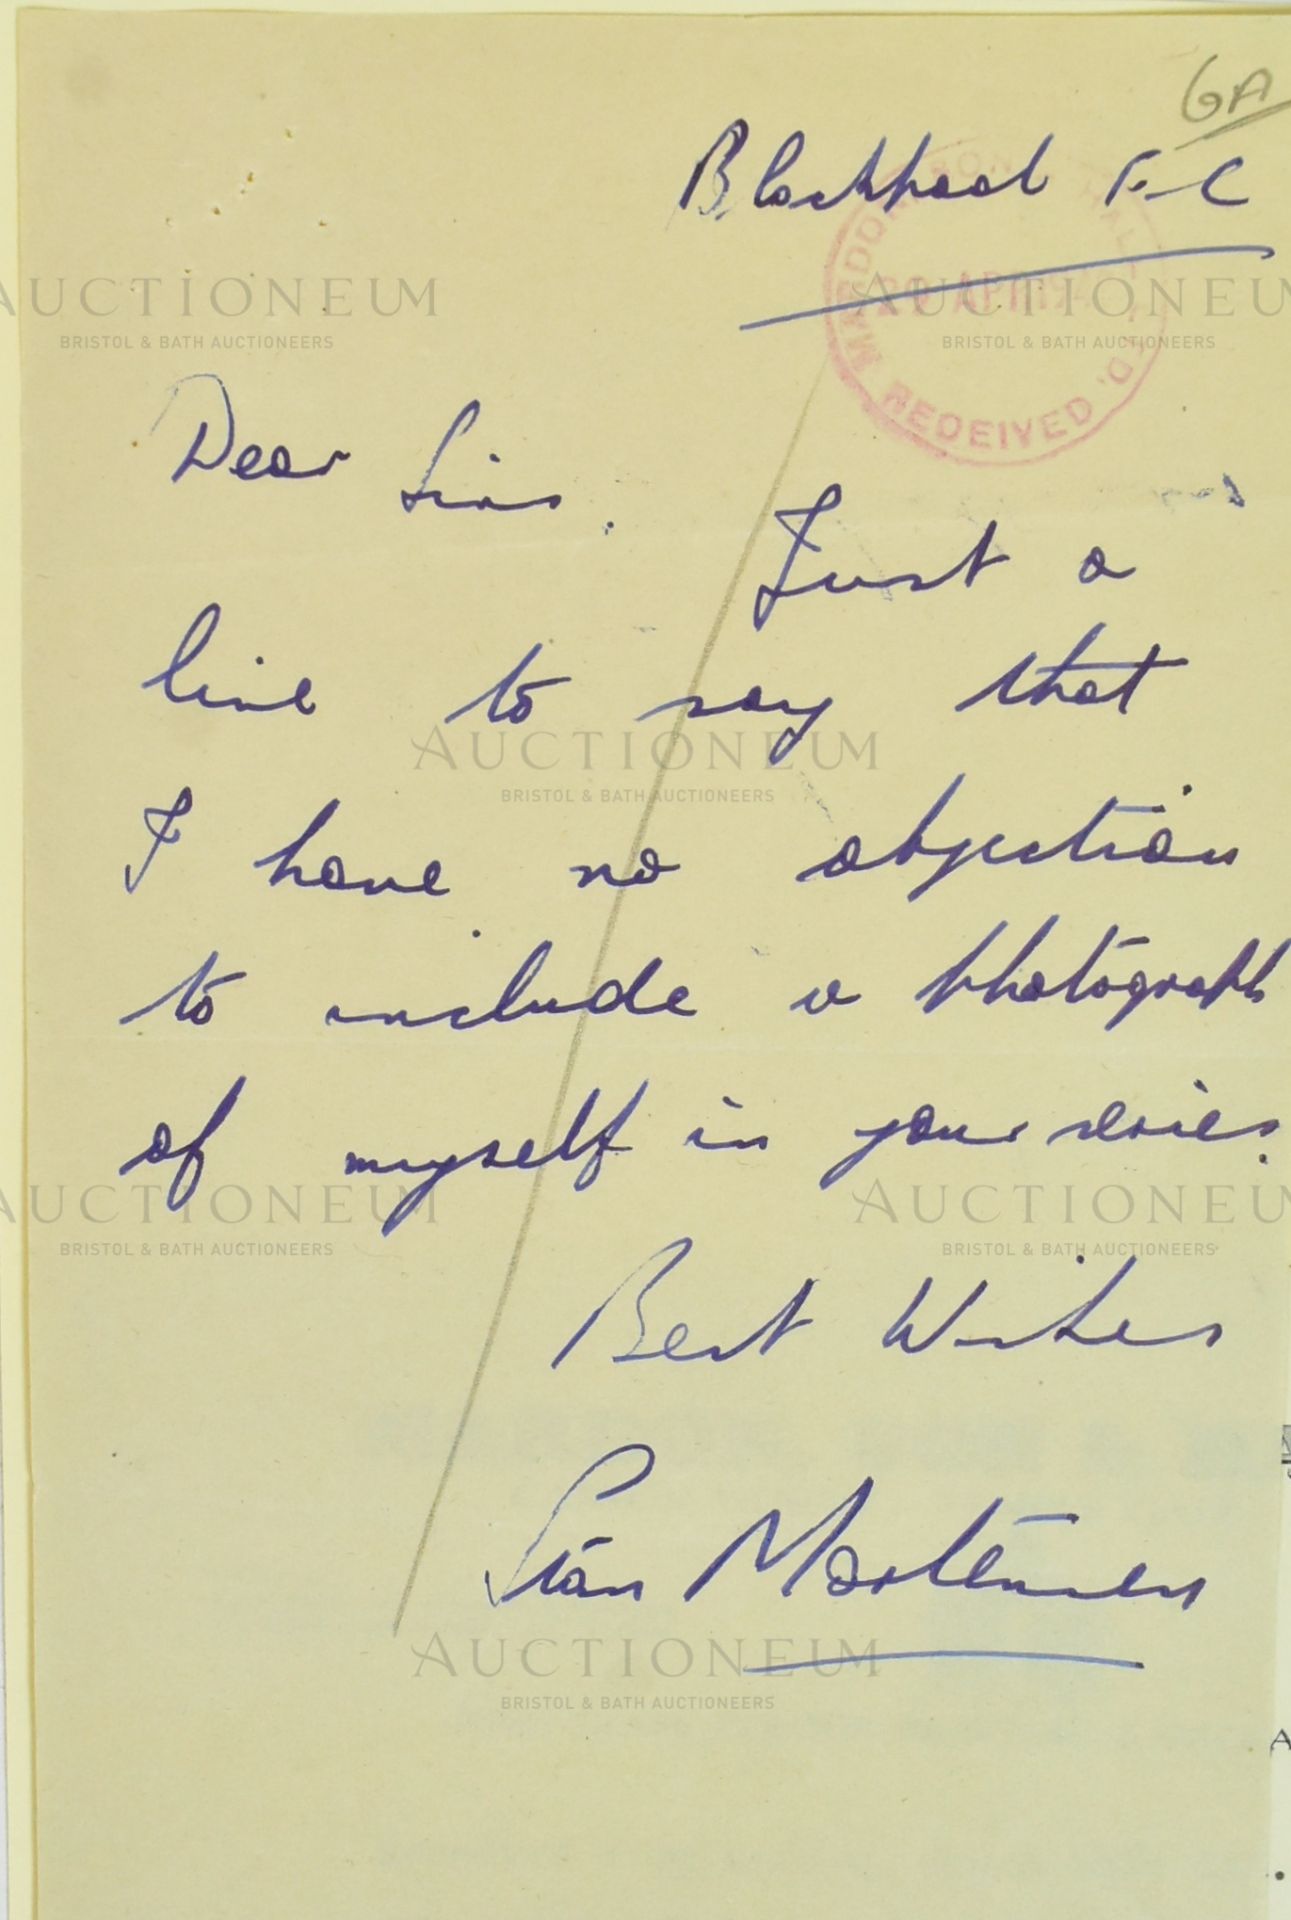 GA
Blackpool F.C
RECEIVED
Dear Sirs,
Just a
line to say that
I have no objection
to include a photograph
of myself in your series.
Best Wishes
Stan Mortensen
AUCTIONEUM
BRISTOL & BATH AUCTIONEERS
AUCTIONEUM
BRISTOL & BATH AUCTIONEERS
AUCTIONEUM
BRISTOL & BATH AUCTIONEERS
AUCTIONEUM
BRISTOL & BATH AUCTIONEERS
AUCTIONEUM
BRISTOL & BATH AUCTIONEERS
AUCTIONEUM
BRISTOL & BATH AUCTIONEERS